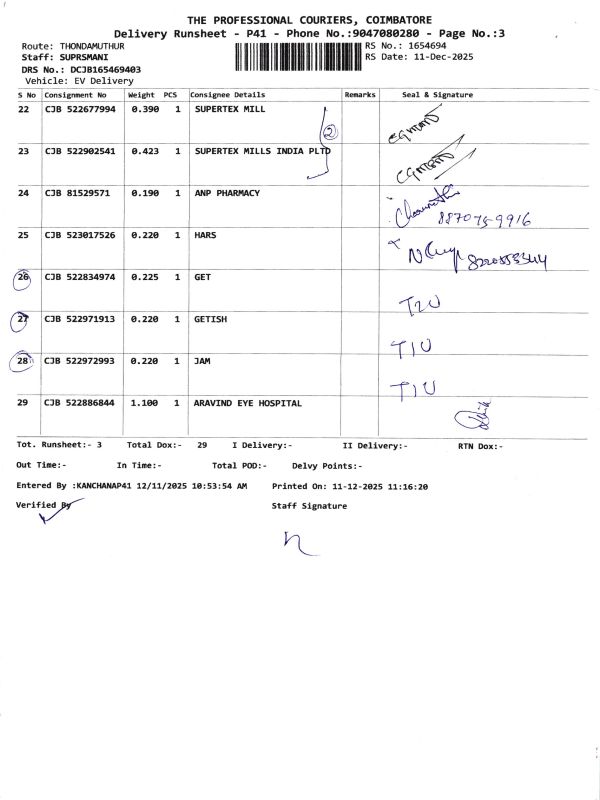 THE PROFESSIONAL COURIERS, COIMBATORE
Delivery Runsheet - P41 - Phone No.:9047080280 - Page No.:3
Route: THONDAMUTHUR RS No.: 1654694
Staff: SUPRSMANI RS Date: 11-Dec-2025
DRS No.: DCJB165469403
Vehicle: EV Delivery
S No Consignment No Weight PCS Consignee Details Remarks Seal & Signature
22 CJB 522677994 0.390 1 SUPERTEX MILL
2
23 CJB 522902541 0.423 1 SUPERTEX MILLS INDIA PLTD
24 CJB 81529571 0.190 1 ANP PHARMACY
25 CJB 523017526 0.220 1 HARS
26 CJB 522834974 0.225 1 GET
27 CJB 522971913 0.220 1 GETISH
T1U
28 CJB 522972993 0.220 1 JAM
T1U
29 CJB 522886844 1.100 1 ARAVIND EYE HOSPITAL
Tot. Runsheet:- 3 Total Dox:- 29 I Delivery:- II Delivery:- RTN Dox:-
Out Time:- In Time:- Total POD:- Delvy Points:-
Entered By :KANCHANAP41 12/11/2025 10:53:54 AM Printed On: 11-12-2025 11:16:20
Verified By Staff Signature